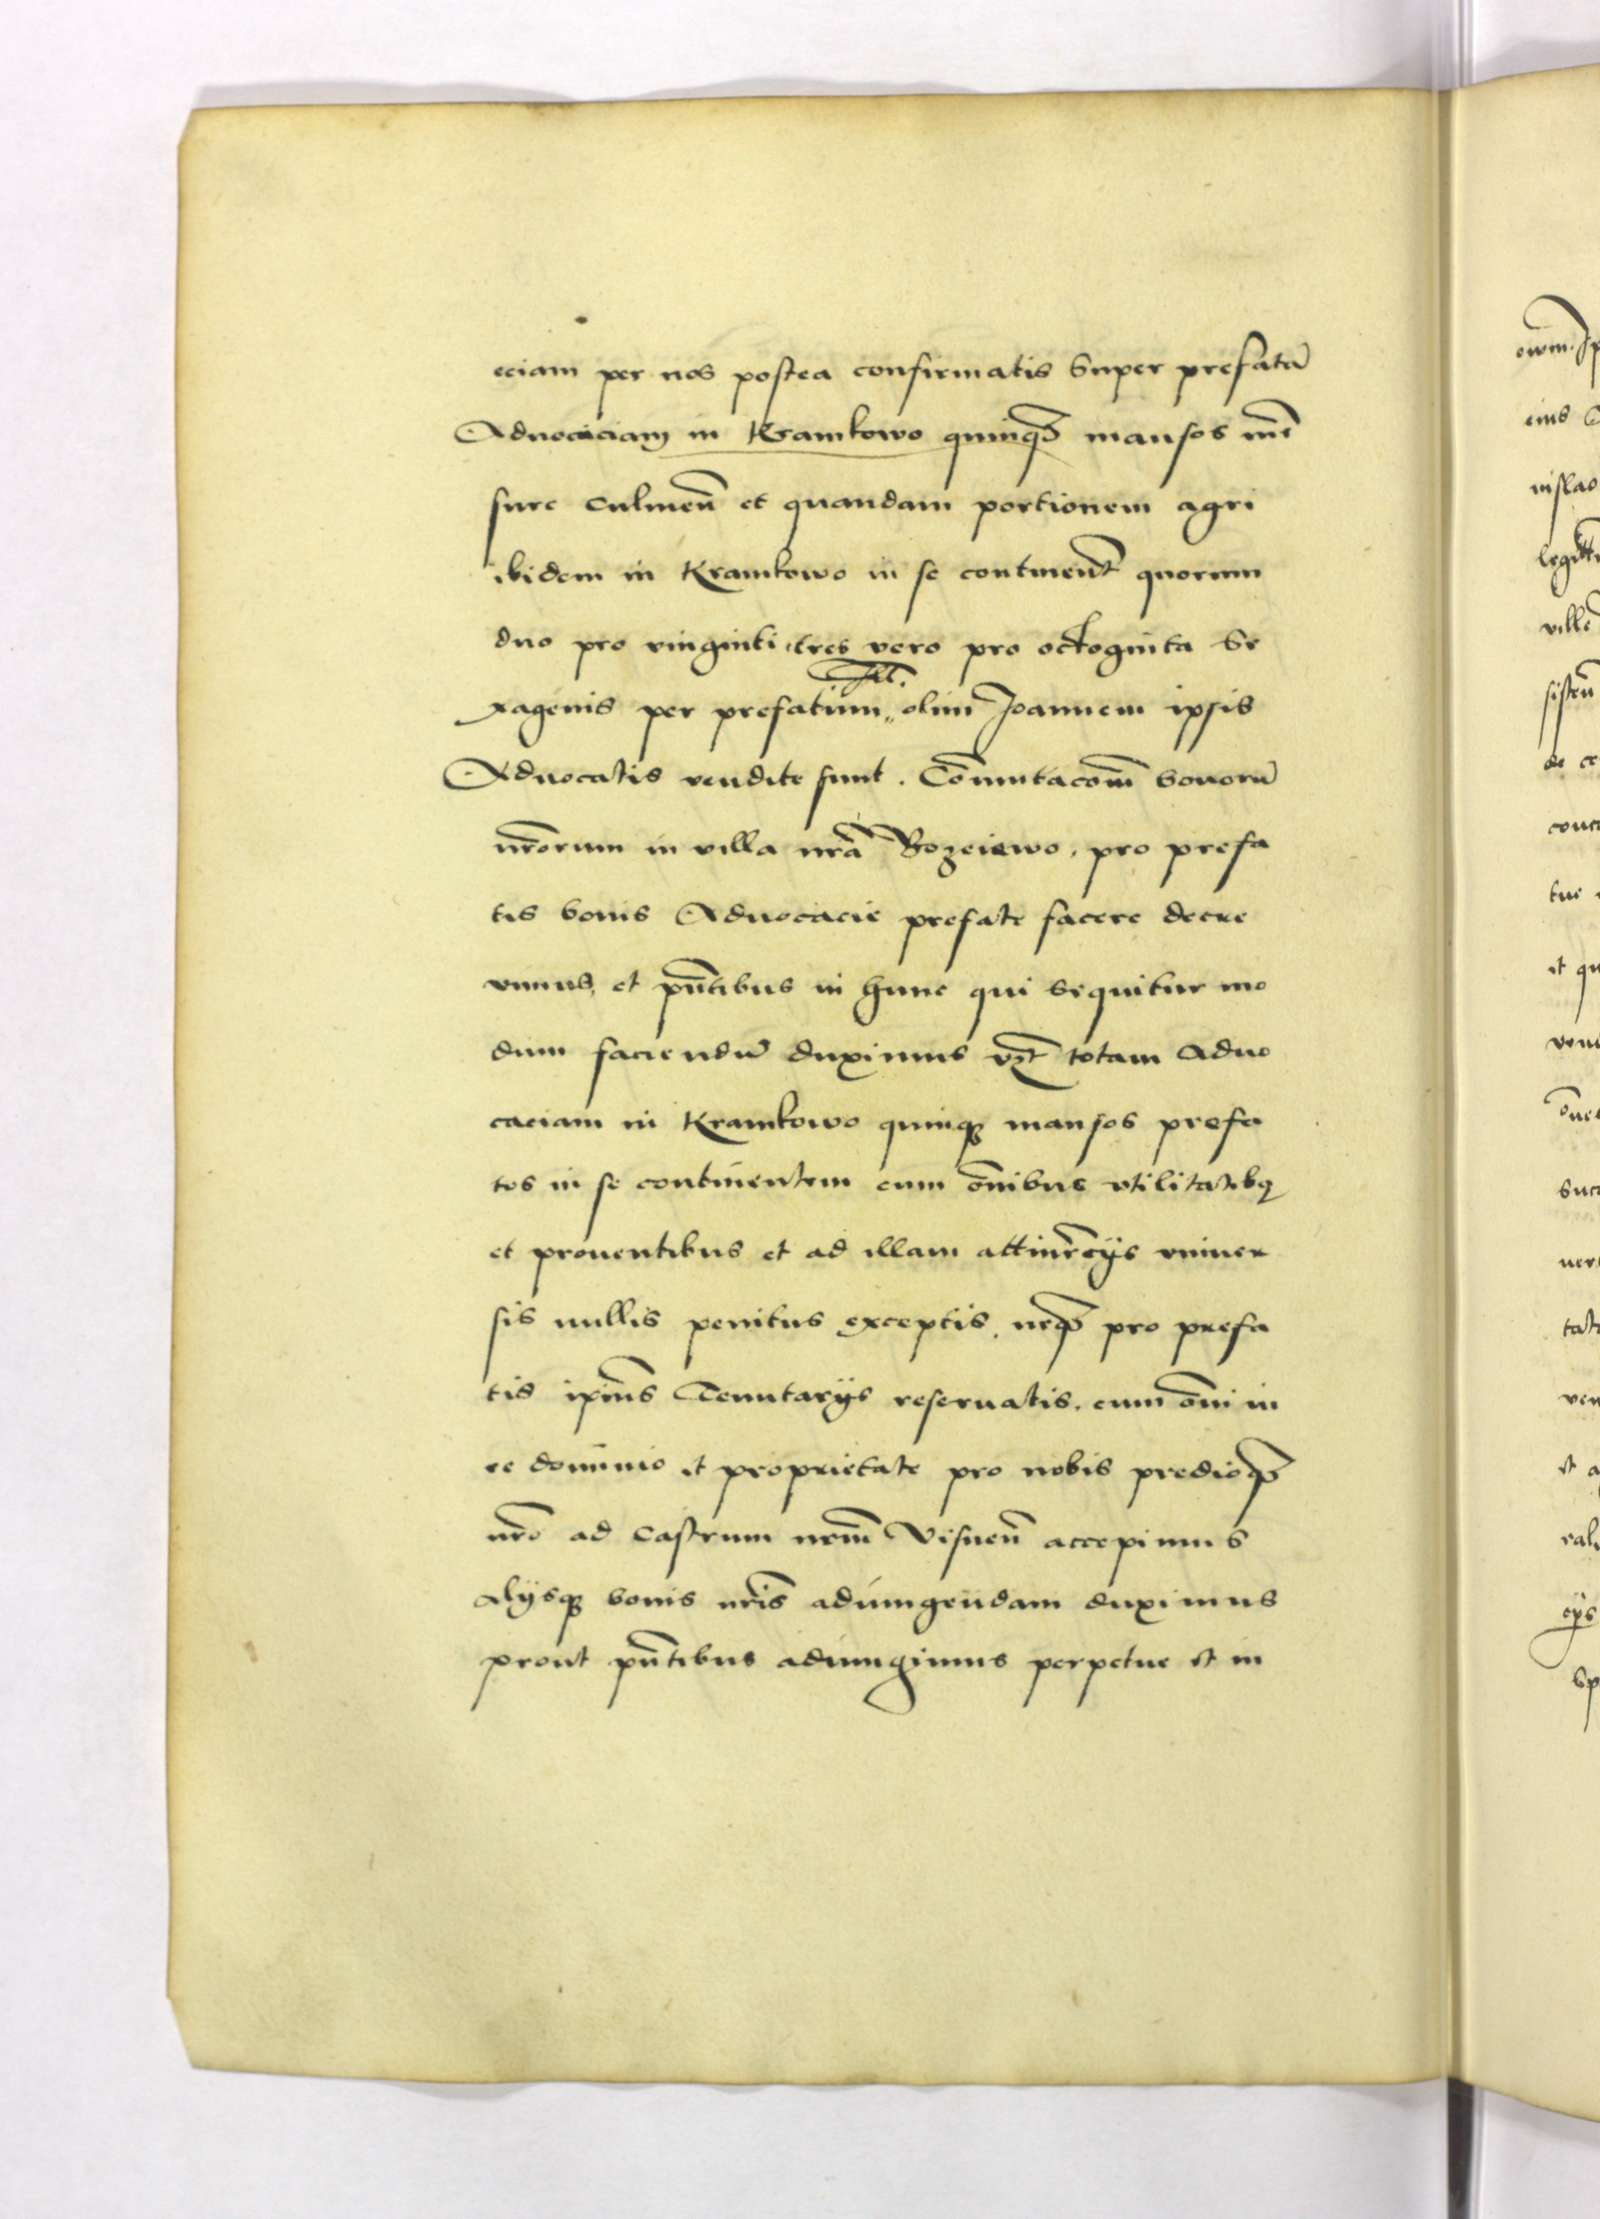 eciam per nos postea confirmatis super prefatā
Aduocaciam in Kramkowo quinqȝ mansos mē
sure Culmeñ et quandam portionem agri
ibidem in Kramkowo in se continent̄ quorum
duo pro vinginti tres vero pro octoginta se
xagenis per prefatum olim Joannem ipsis
Aduocatis vendite sunt. Cōmutacōm bonorū
nr̄orum in villa nrā Bozeiewo, pro prefa
tis bonis Aduocacie prefate facere decre
uimus, et pn̄tibus in hunc qui sequitur mo
dum faciendū duximus vȝt totam Aduo
caciam in Kramkowo quinqȝ mansos prefa
tos in se continentem cum om̄ibus vtilitatibȝ
et prouentibus et ad illam attinēcijs vniuer
sis nullis penitus exceptis, neqȝ pro prefa
tis ip̄ius Tenutarijs reseruatis, cum om̄i iu
re dominio et proprietate pro nobis predioqȝ
nr̄o ad Castrum nr̄m Visneñ accepimus
alijsqȝ bonis nr̄is adiungendam duximus
prout pn̄tibus adiungimus perpetue et in